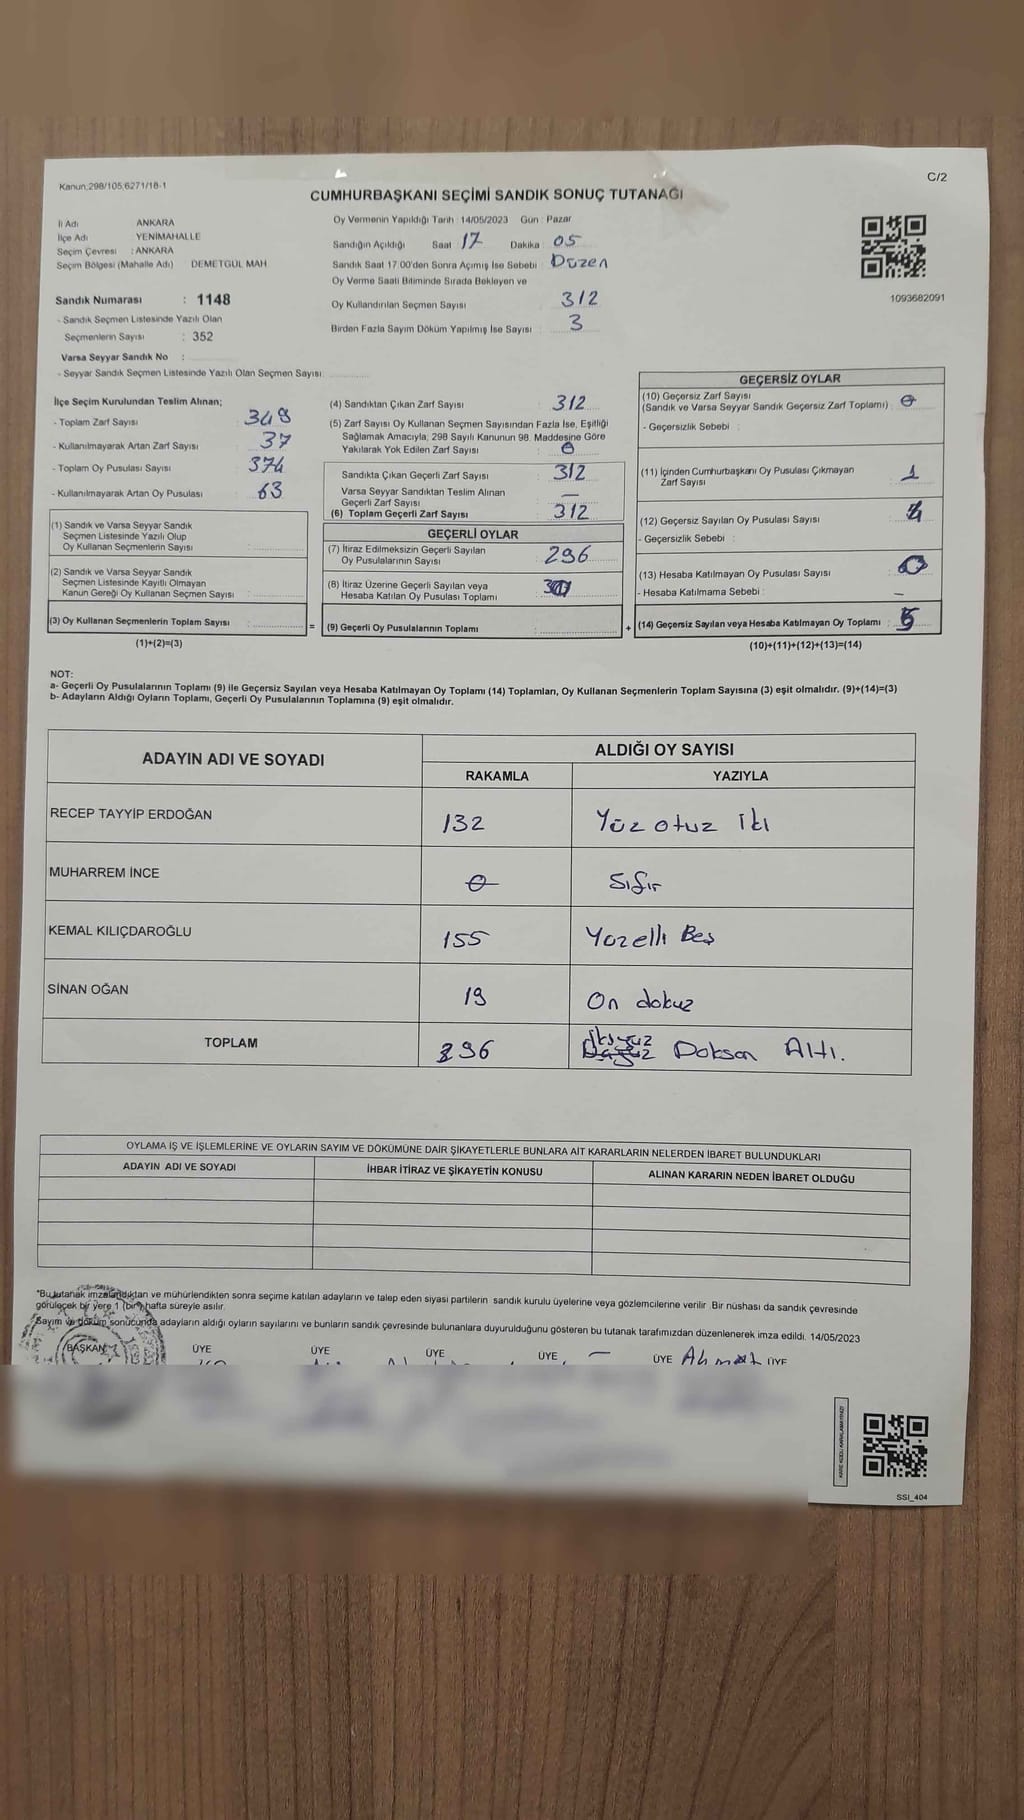 Kanun,298/105,6271/18-1
C/2
CUMHURBAŞKANI SEÇİMİ SANDIK SONUÇ TUTANAĞI
İl Adı ANKARA
İlçe Adı YENİMAHALLE
Seçim Çevresi : ANKARA
Seçim Bölgesi (Mahalle Adı) DEMETGÜL MAH
Sandık Numarası : 1148
- Sandık Seçmen Listesinde Yazılı Olan
Seçmenlerin Sayısı : 352
Varsa Seyyar Sandık No :
- Seyyar Sandık Seçmen Listesinde Yazılı Olan Seçmen Sayısı:
Oy Vermenin Yapıldığı Tarih : 14/05/2023 Gün : Pazar
Sandığın Açıldığı Saat 17 Dakika : 05
Sandık Saat 17.00'den Sonra Açımış İse Sebebi : Düzen
Oy Verme Saati Bitiminde Sırada Bekleyen ve
Oy Kullandırılan Seçmen Sayısı 312
Birden Fazla Sayım Döküm Yapılmış İse Sayısı : 3
1093682091
İlçe Seçim Kurulundan Teslim Alınan;
- Toplam Zarf Sayısı : 348
- Kullanılmayarak Artan Zarf Sayısı : 37
- Toplam Oy Pusulası Sayısı : 374
- Kullanılmayarak Artan Oy Pusulası : 63
(1) Sandık ve Varsa Seyyar Sandık
Seçmen Listesinde Yazılı Olup
Oy Kullanan Seçmenlerin Sayısı :
(2) Sandık ve Varsa Seyyar Sandık
Seçmen Listesinde Kayıtlı Olmayan
Kanun Gereği Oy Kullanan Seçmen Sayısı :
(3) Oy Kullanan Seçmenlerin Toplam Sayısı :
(1)+(2)=(3)
(4) Sandıktan Çıkan Zarf Sayısı : 312
(5) Zarf Sayısı Oy Kullanan Seçmen Sayısından Fazla İse, Eşitliği
Sağlamak Amacıyla; 298 Sayılı Kanunun 98. Maddesine Göre
Yakılarak Yok Edilen Zarf Sayısı : 0
Sandıkta Çıkan Geçerli Zarf Sayısı 312
Varsa Seyyar Sandıktan Teslim Alınan
Geçerli Zarf Sayısı —
(6) Toplam Geçerli Zarf Sayısı 312
GEÇERLİ OYLAR
(7) İtiraz Edilmeksizin Geçerli Sayılan
Oy Pusulalarının Sayısı 296
(8) İtiraz Üzerine Geçerli Sayılan veya
Hesaba Katılan Oy Pusulası Toplamı
= (9) Geçerli Oy Pusulalarının Toplamı :
GEÇERSİZ OYLAR
(10) Geçersiz Zarf Sayısı
(Sandık ve Varsa Seyyar Sandık Geçersiz Zarf Toplamı) : 0
- Geçersizlik Sebebi :
(11) İçinden Cumhurbaşkanı Oy Pusulası Çıkmayan
Zarf Sayısı : 1
(12) Geçersiz Sayılan Oy Pusulası Sayısı : 4
- Geçersizlik Sebebi :
(13) Hesaba Katılmayan Oy Pusulası Sayısı : 0
- Hesaba Katılmama Sebebi : —
+ (14) Geçersiz Sayılan veya Hesaba Katılmayan Oy Toplamı : 5
(10)+(11)+(12)+(13)=(14)
NOT:
a- Geçerli Oy Pusulalarının Toplamı (9) ile Geçersiz Sayılan veya Hesaba Katılmayan Oy Toplamı (14) Toplamları, Oy Kullanan Seçmenlerin Toplam Sayısına (3) eşit olmalıdır. (9)+(14)=(3)
b- Adayların Aldığı Oyların Toplamı, Geçerli Oy Pusulalarının Toplamına (9) eşit olmalıdır.
ADAYIN ADI VE SOYADI ALDIĞI OY SAYISI
RAKAMLA YAZIYLA
RECEP TAYYİP ERDOĞAN 132 Yüz otuz iki
MUHARREM İNCE 0 Sıfır
KEMAL KILIÇDAROĞLU 155 Yüzelli Beş
SİNAN OĞAN 19 On dokuz
TOPLAM 296 İkiyüz Doksan Altı.
OYLAMA İŞ VE İŞLEMLERİNE VE OYLARIN SAYIM VE DÖKÜMÜNE DAİR ŞİKAYETLERLE BUNLARA AİT KARARLARIN NELERDEN İBARET BULUNDUKLARI
ADAYIN ADI VE SOYADI İHBAR İTİRAZ VE ŞİKAYETİN KONUSU ALINAN KARARIN NEDEN İBARET OLDUĞU
*Bu tutanak imzalandıktan ve mühürlendikten sonra seçime katılan adayların ve talep eden siyasi partilerin sandık kurulu üyelerine veya gözlemcilerine verilir. Bir nüshası da sandık çevresinde
görülecek bir yere 1 (bir) hafta süreyle asılır.
Sayım ve döküm sonucunda adayların aldığı oyların sayılarını ve bunların sandık çevresinde bulunanlara duyurulduğunu gösteren bu tutanak tarafımızdan düzenlenerek imza edildi. 14/05/2023
BAŞKAN ÜYE ÜYE ÜYE ÜYE ÜYE Ahmet ÜYE
SSI_404